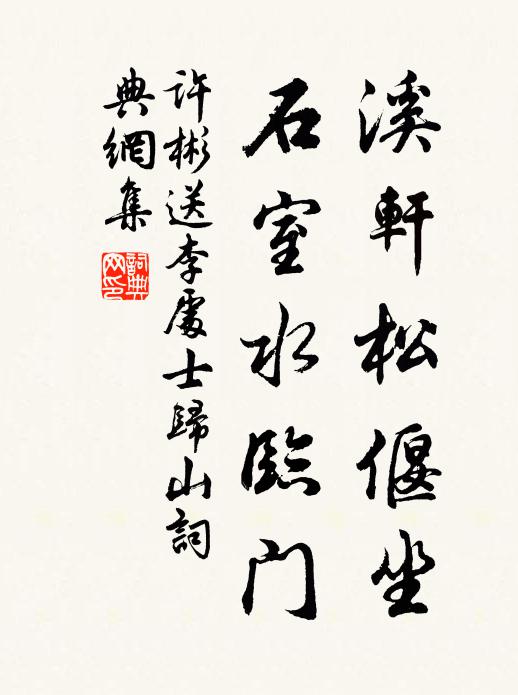 溪軒松偃坐
石室水臨門
許彬送李處士歸山詞
典網集
詞典網印